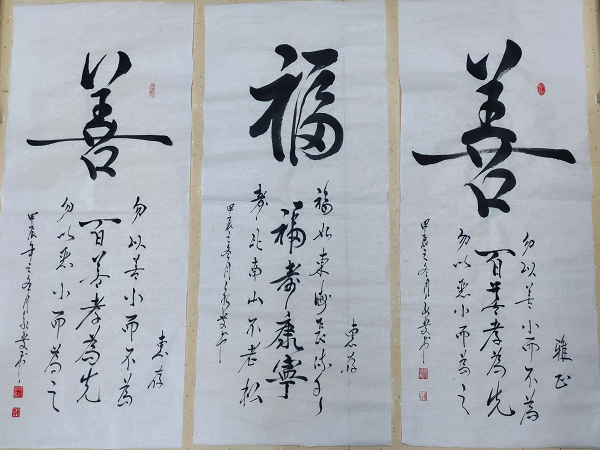 善
雅正
勿以善小而不為
百善孝為先
勿以惡小而為之
甲辰之冬月
福
惠存
福如東海長流水
福壽康寧
壽比南山不老松
甲辰之冬月
善
惠存
勿以善小而不為
百善孝為先
勿以惡小而為之
甲辰年之冬月